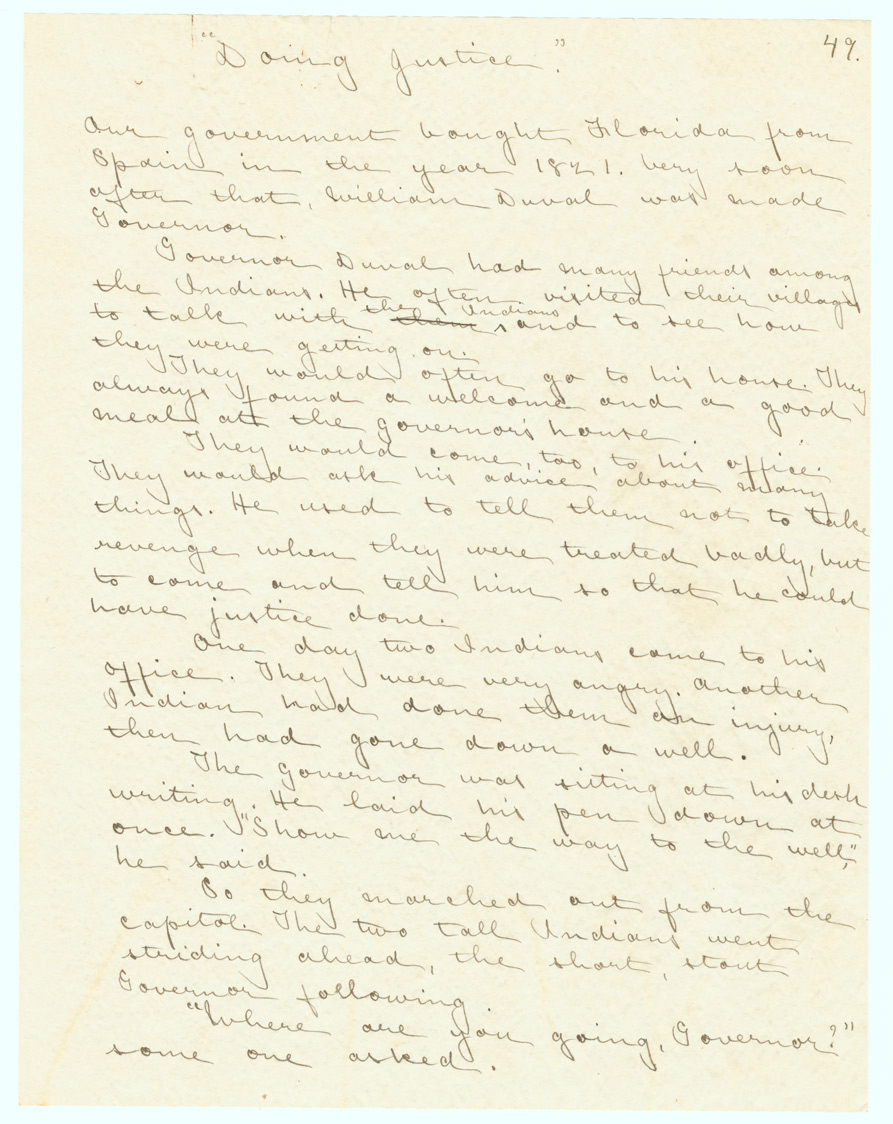 49.
"Doing Justice".
Our government bought Florida from
Spain in the year 1821. Very soon
after that, William Duval was made
Governor.
Governor Duval had many friends among
the Indians. He often visited their villages
to talk with ~~them~~ the Indians, and to see how
they were getting on.
They would often go to his house. They
always found a welcome and a good
meal at the governor's house.
They would come, too, to his office.
They would ask his advice about many
things. He used to tell them not to take
revenge when they were treated badly, but
to come and tell him so that he could
have justice done.
One day two Indians came to his
office. They were very angry. Another
Indian had done them an injury,
then had gone down a well.
The Governor was sitting at his desk
writing. He laid his pen down at
once. "Show me the way to the well,"
he said.
So they marched out from the
capitol. The two tall Indians went
striding ahead, the short, stout
Governor following
"Where are you going, Governor?"
some one asked.